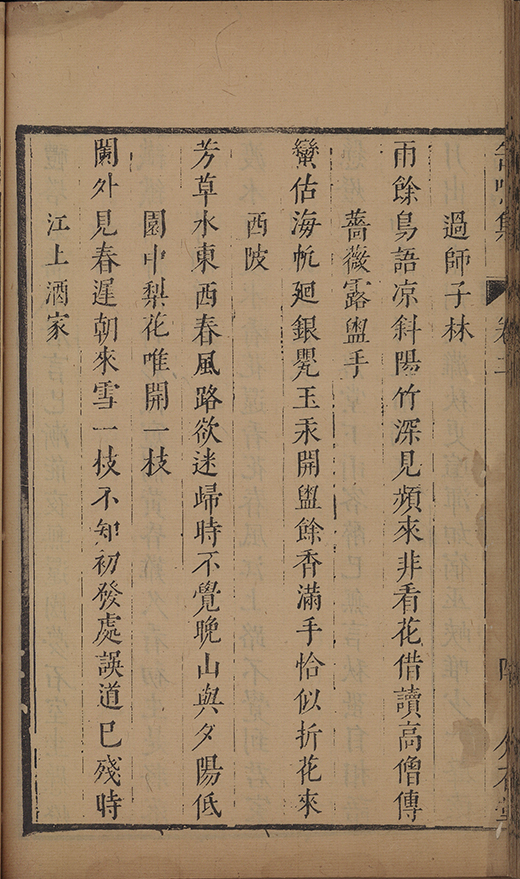 過師子林
雨餘鳥語凉斜陽竹深見頻來非看花借讀高僧傳
薔薇露盥手
蠻估海帆廻銀甖玉汞開盥餘香滿手恰似折花來
西陂
芳草水東西春風路欲迷歸時不覺晚山與夕陽低
園中梨花唯開一枝
闌外見春遲朝來雪一枝不知初發處誤道已殘時
江上酒家